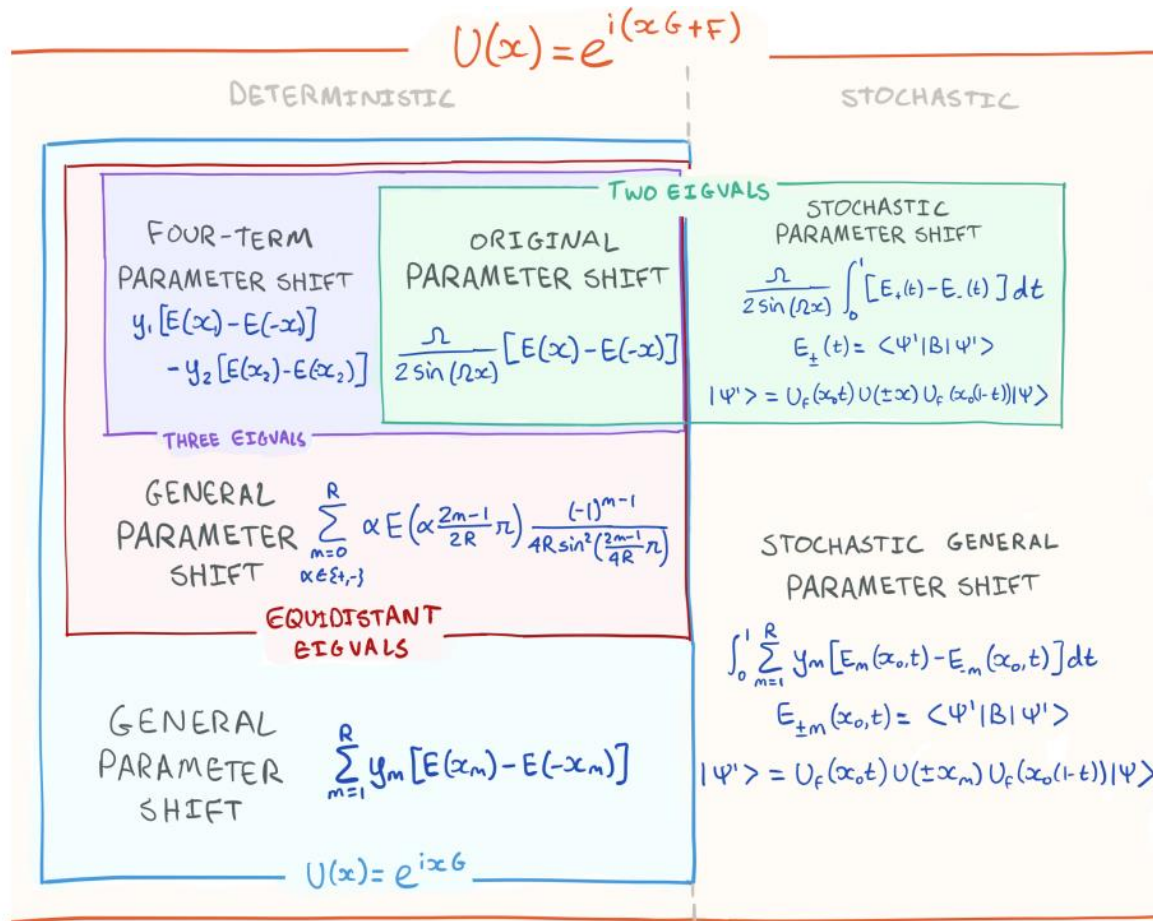 U(x) = e^{i(xG+F)}
DETERMINISTIC
STOCHASTIC
TWO EIGVALS
FOUR-TERM
PARAMETER SHIFT
y₁[E(x₁)-E(-x₁)]
-y₂[E(x₂)-E(-x₂)]
THREE EIGVALS
ORIGINAL
PARAMETER SHIFT
\frac{Ω}{2 sin(Ωx)} [E(x)-E(-x)]
STOCHASTIC
PARAMETER SHIFT
\frac{Ω}{2 sin(Ωx)} ∫_0^1 [E₊(t)-E₋(t)] dt
E_±(t) = <Ψ'|B|Ψ'>
|Ψ'> = U_F(x₀t) U(±x) U_F(x₀(1-t))|Ψ>
GENERAL
PARAMETER
SHIFT
\sum_{m=0}^{R} αE(α\frac{2m-1}{2R}π) \frac{(-1)^{m-1}}{4R sin²(\frac{2m-1}{4R}π)}
α∈{+,-}
EQUIDISTANT
EIGVALS
GENERAL
PARAMETER
SHIFT
\sum_{m=1}^{R} y_m[E(x_m)-E(-x_m)]
U(x) = e^{ixG}
STOCHASTIC GENERAL
PARAMETER SHIFT
∫_0^1 \sum_{m=1}^{R} y_m[E_m(x₀,t)-E_{-m}(x₀,t)]dt
E_{±m}(x₀,t) = <Ψ'|B|Ψ'>
|Ψ'> = U_F(x₀t) U(±x_m) U_F(x₀(1-t))|Ψ>